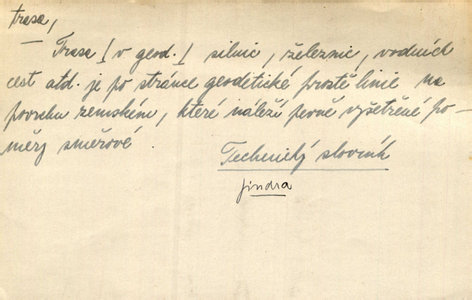 trasa,
Trasa / v geod. / silnic, železnic, vodních
cest atd. je po stránce geodetické prostě linie na
povrchu zemském, které náleží pevně vyšetřené po-
měry směrové.
Technický slovník
Jindra